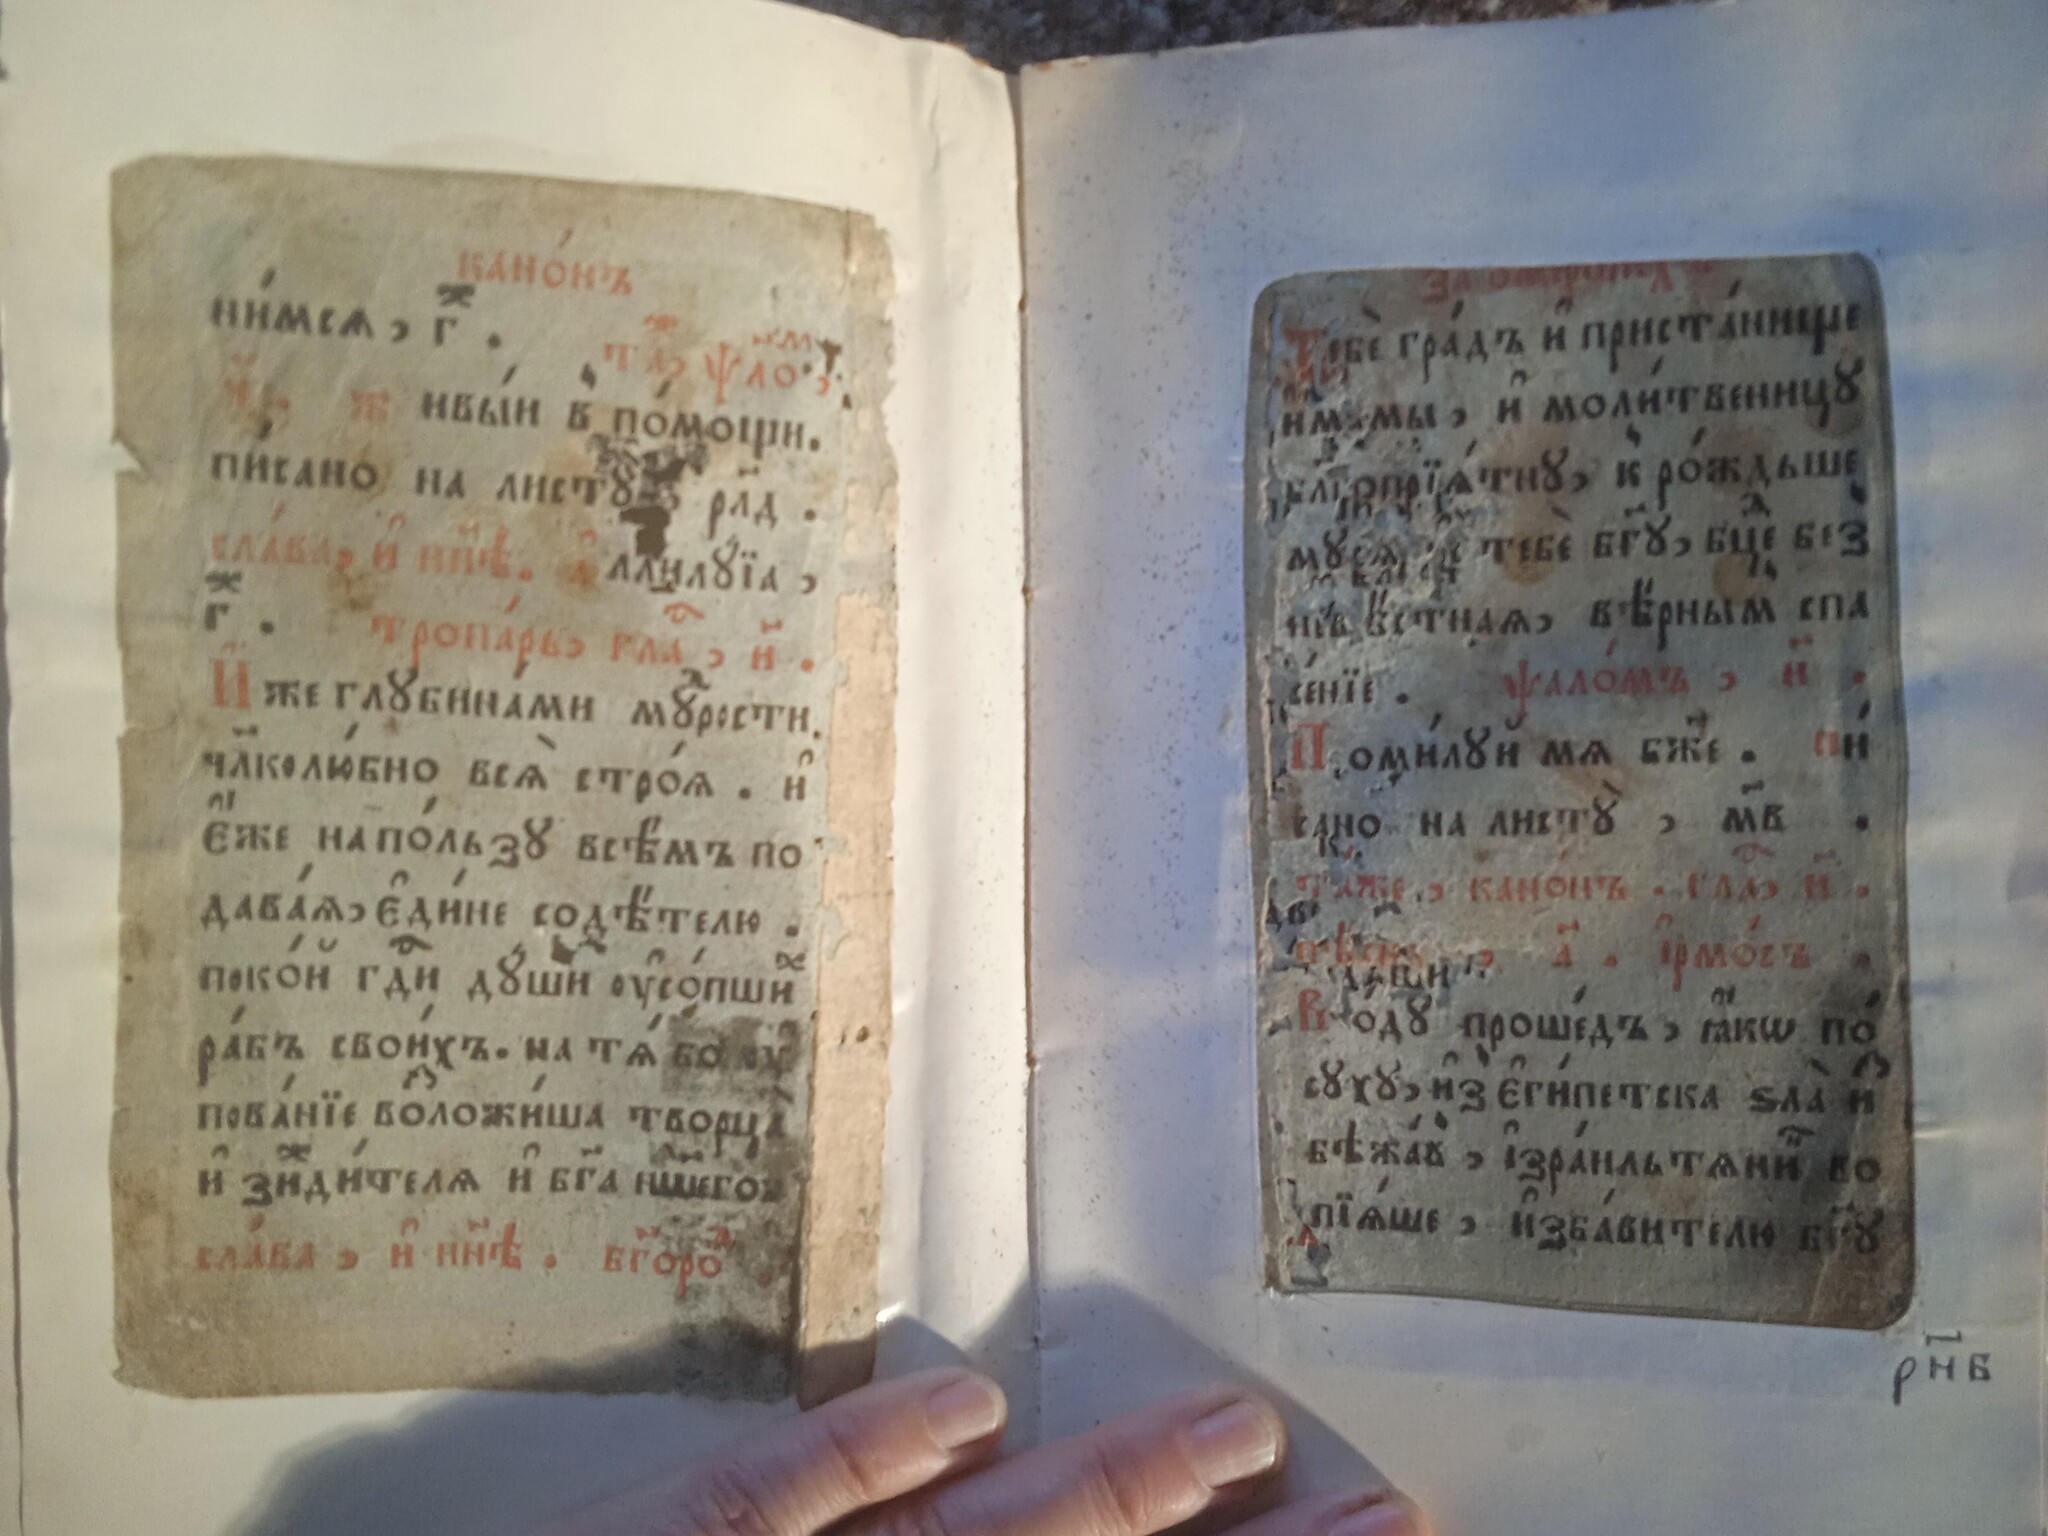 канѡ́нъ
ни́мсѧ, г҃ж .
та́ж, ѱало́м,
живы́и в по́мощи.
пи́сано на листꙋ̀, рл҃д .
сла́ва, и҆ нн҃ѣ. а҆ллилꙋ́їа,
г҃ж . тропа́рь, гла́в, и҃ .
И҆же глꙋбина́ми мꙋ́дрости
чл҃колю́бно всѧ̀ стро́ѧ . и҆
є҆́же на по́льзꙋ всѣ̑мъ по
дава́ѧ, є҆ди́не содѣ́телю .
поко́й гд҇и дꙋ́ши оу҆со́пших
ра́бъ свои́хъ. на тѧ́ бо оу҆
пова́нїе возложи́ша творца̀
и҆ зижди́телѧ и҆ бг҃а на́шего
сла́ва, и҆ нн҃ѣ . бг҃оро́д .
Тебѐ гра́дъ и҆ приста́нище
и́мамы, и҆ моли́твеницꙋ
бл҃гопрїѧ́тнꙋ, к ро́ждьше
мꙋсѧ и҆с тебѐ бг҃ꙋ, бц҃де без
невѣ́стнаѧ, вѣ̑рнымъ спа
се́нїе . ѱало́мъ, н҃ .
Поми́лꙋй мѧ бж҃е . пи́
сано на листꙋ̀, мв҃ .
та́же, кано́нъ . гла́в, и҃ .
пѣ́снь, а҃ . і҆рмо́съ .
Во́дꙋ проше́дъ, ꙗ҆́кѡ по́
сꙋхꙋ, и҆з є҆ги́петска ѕла̀ и҆з
бѣжа́в, і҆зра́ильтѧнин во
пїѧ́ше, и҆зба́вителю бг҃ꙋ
рнв